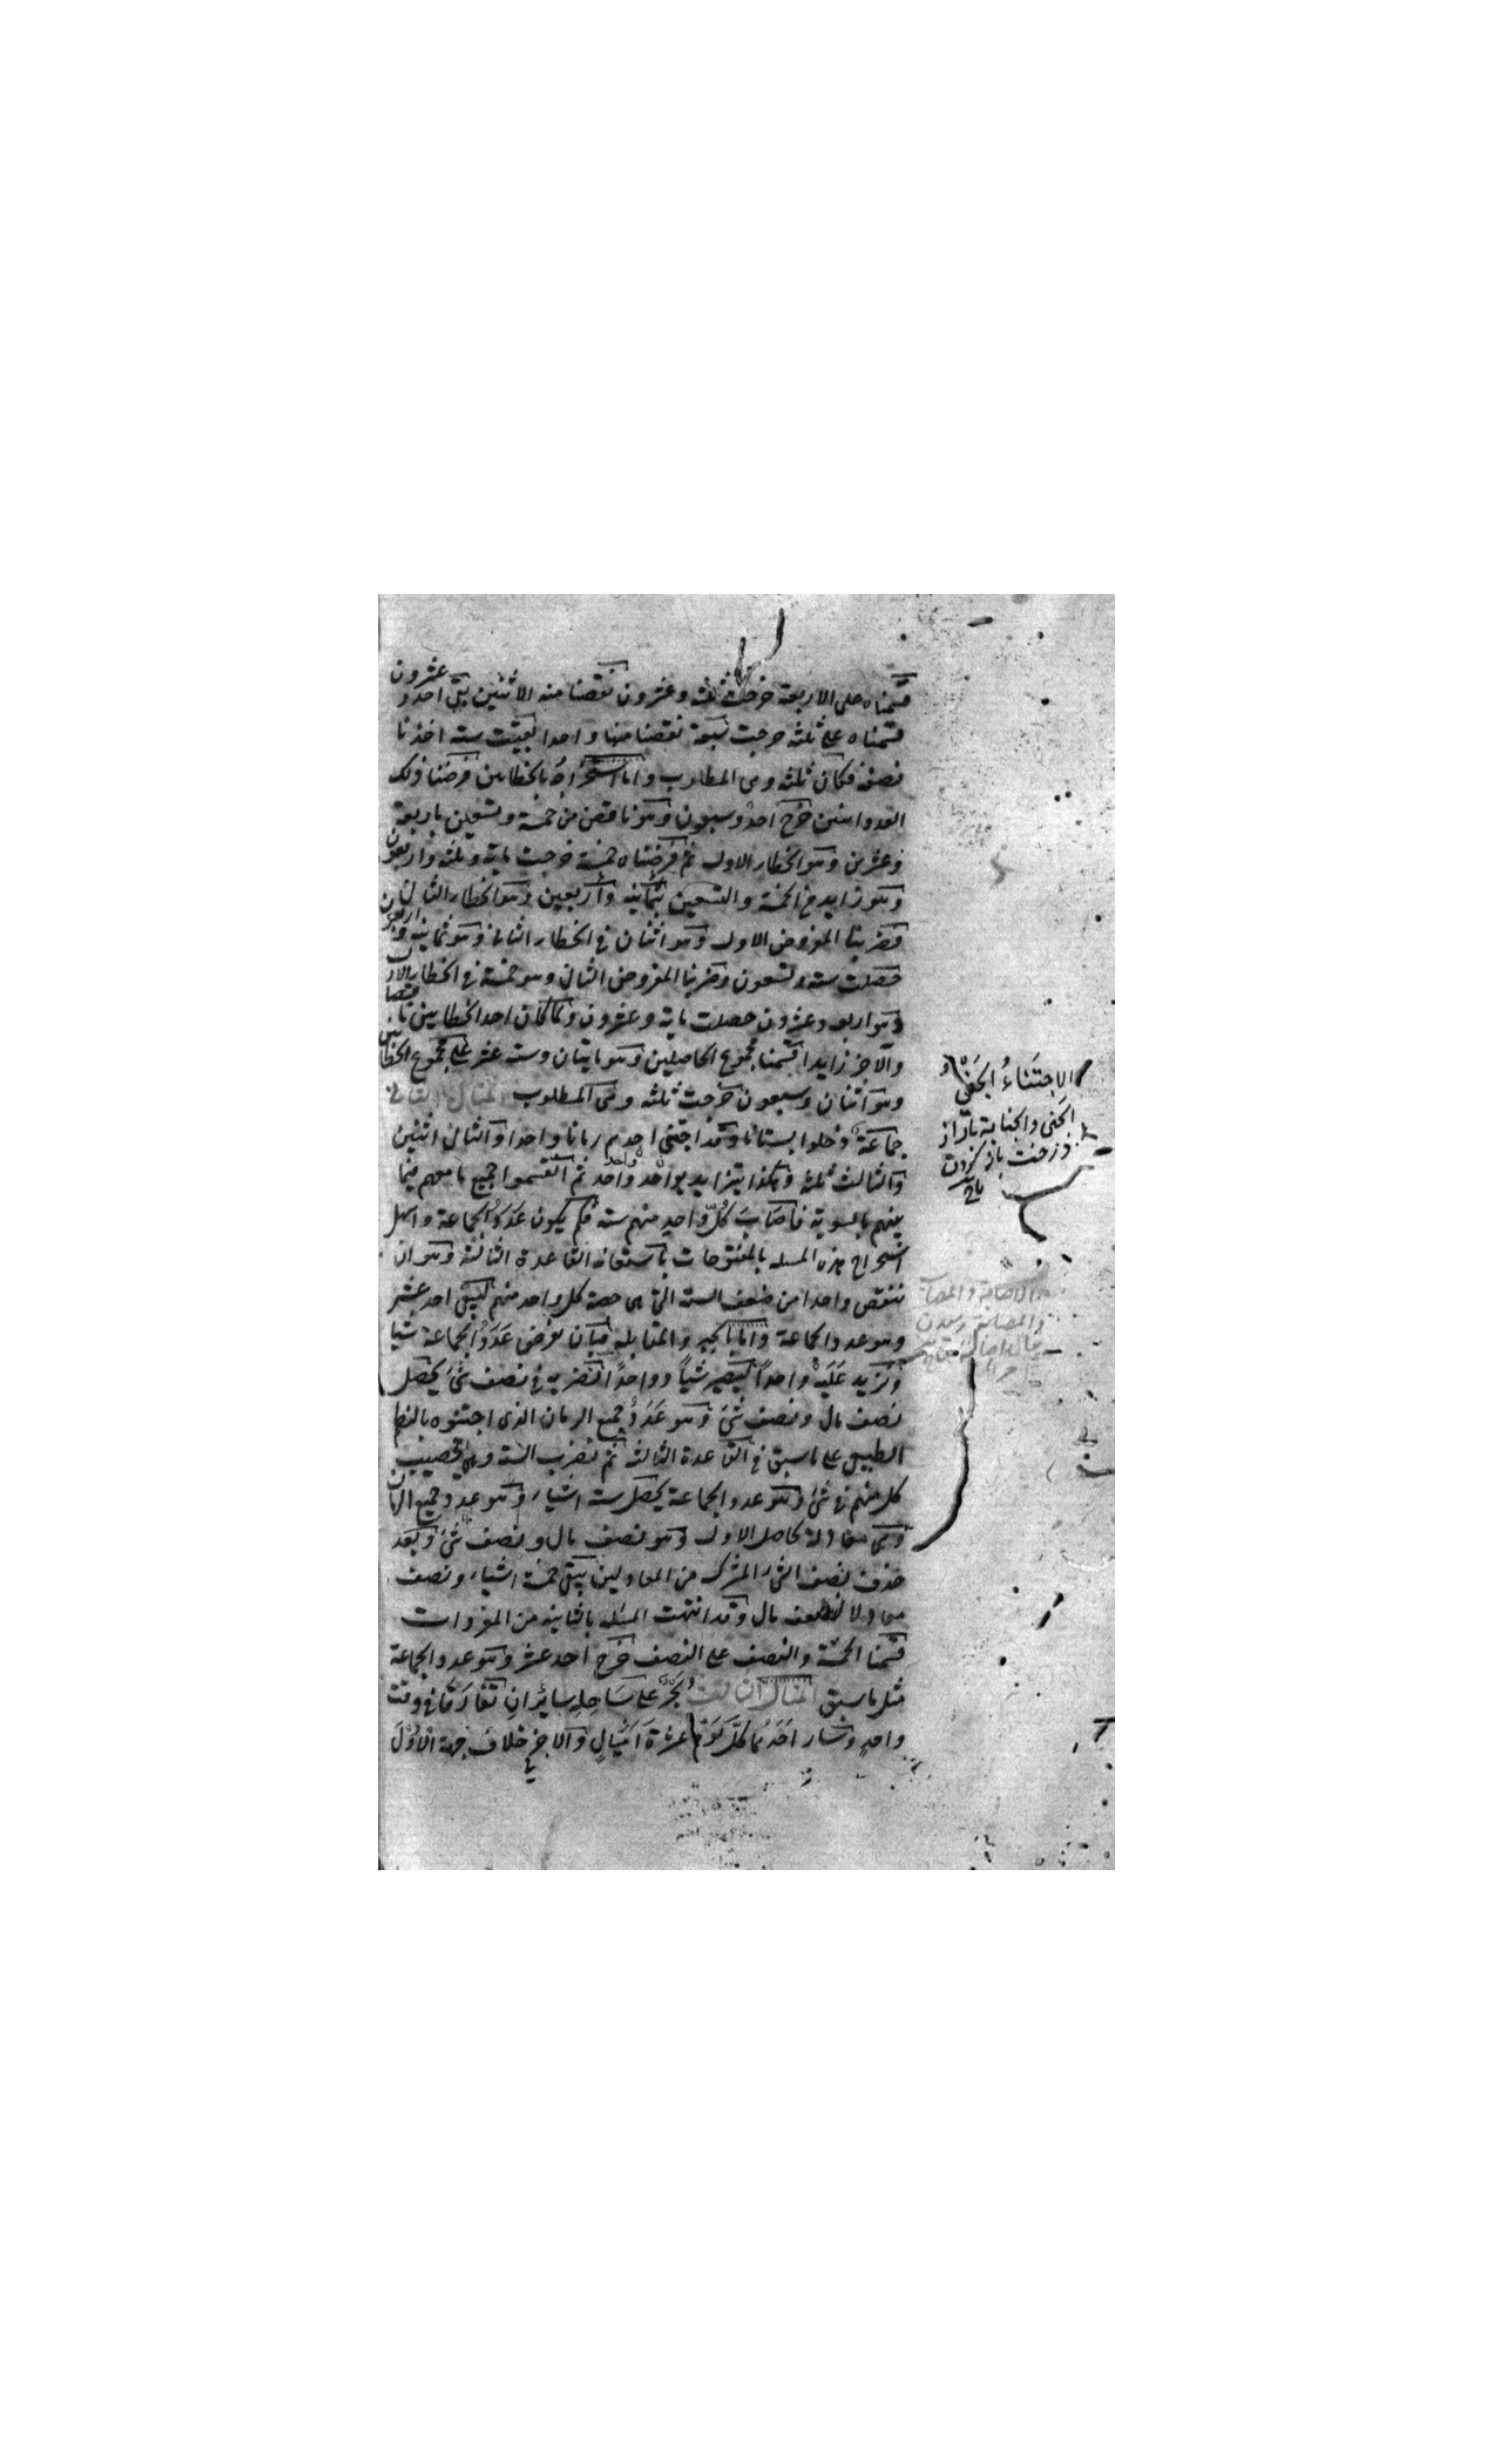 قسمناه على الاربعة خرجت ثلثة وعشرون نقصنا منه الاثنين بقى احد و عشرون
قسمناه على ثلثة خرجت سبعة نقصنا منها واحدا بقيت ستة اخذنا
نصفه فكان ثلثة وهى المطلوب واما استخراجه بالخطايين فرضنا ذلك
العدد اثنين خرج احد وسبعون وهو ناقص من خمسة وتسعين باربعة
وعشرين وهو الخطاء الاول ثم فرضناه خمسة خرجت ماية وثلثة واربعون
وهو زايد من الخمسة والتسعين بثمانية واربعين وهو الخطاء الثانى
فضربنا المفروض الاول وهو اثنان فى الخطاء الثانى وهو ثمانية و اربعون
حصلت ستة وتسعون وضربنا المفروض الثانى وهو خمسة فى الخطاء الاول
وهو اربعة وعشرون حصلت ماية وعشرون ولما كان احد الخطايين ناقصا
والاخر زايدا قسمنا مجموع الحاصلين وهو مايتان وستة عشر على مجموع الخطايين
وهو اثنان وسبعون خرجت ثلثة وهى المطلوب المثال الثانى
جماعة دخلوا بستانا وقد اجتنى احدهم رمانا واحدا والثانى اثنين
والثالث ثلثة وهكذا يتزايد بواحد واحد ثم اقتسموا جميع ما معهم فيما
بينهم بالسوية فاصاب كل واحد منهم ستة فكم يكون عدد الجماعة واسهل
استخراج هذه المسئلة بالمفتوحات باستعانة القاعدة الثالثة وهو ان
ننقص واحدا من ضعف الستة التى هى حصة كل واحد منهم ليبقى احد عشر
وهو عدد الجماعة واما بالجبر والمقابلة فبان نفرض عدد الجماعة شيا
ونزيد عليه واحدا ليصير شيا وواحدا نضربه فى نصف شئ يحصل
نصف مال ونصف شئ وهو عدد جميع الرمان الذى اجتنوه بالنظم
الطبيعى على ما سبق فى القاعدة الثالثة ثم نضرب الستة وهى نصيب
كل منهم فى شئ وهو عدد الجماعة يحصل ستة اشياء وهو عدد جميع الرمان
وهى معادلة لحاصل الاول وهو نصف مال ونصف شئ وبعد
حذف نصف الشئ المشترك من المعادلين يبقى خمسة اشياء ونصف
معادلا لنصف مال وقد انتهت المسئلة بالثانية من المفردات
قسمنا الخمسة والنصف على النصف خرج احد عشر وهو عدد الجماعة
مثل ما سبق المثال الثالث بحر على ساحله سايران تفارقا فى وقت
واحد وسار احدهما كل يوم عشرة اميال والاخر خلاف جهة الاول
الاجتناء الجنى و
الجنى والجناية بار از
درخت باز كردن
تاج
الاصابة والمصاب